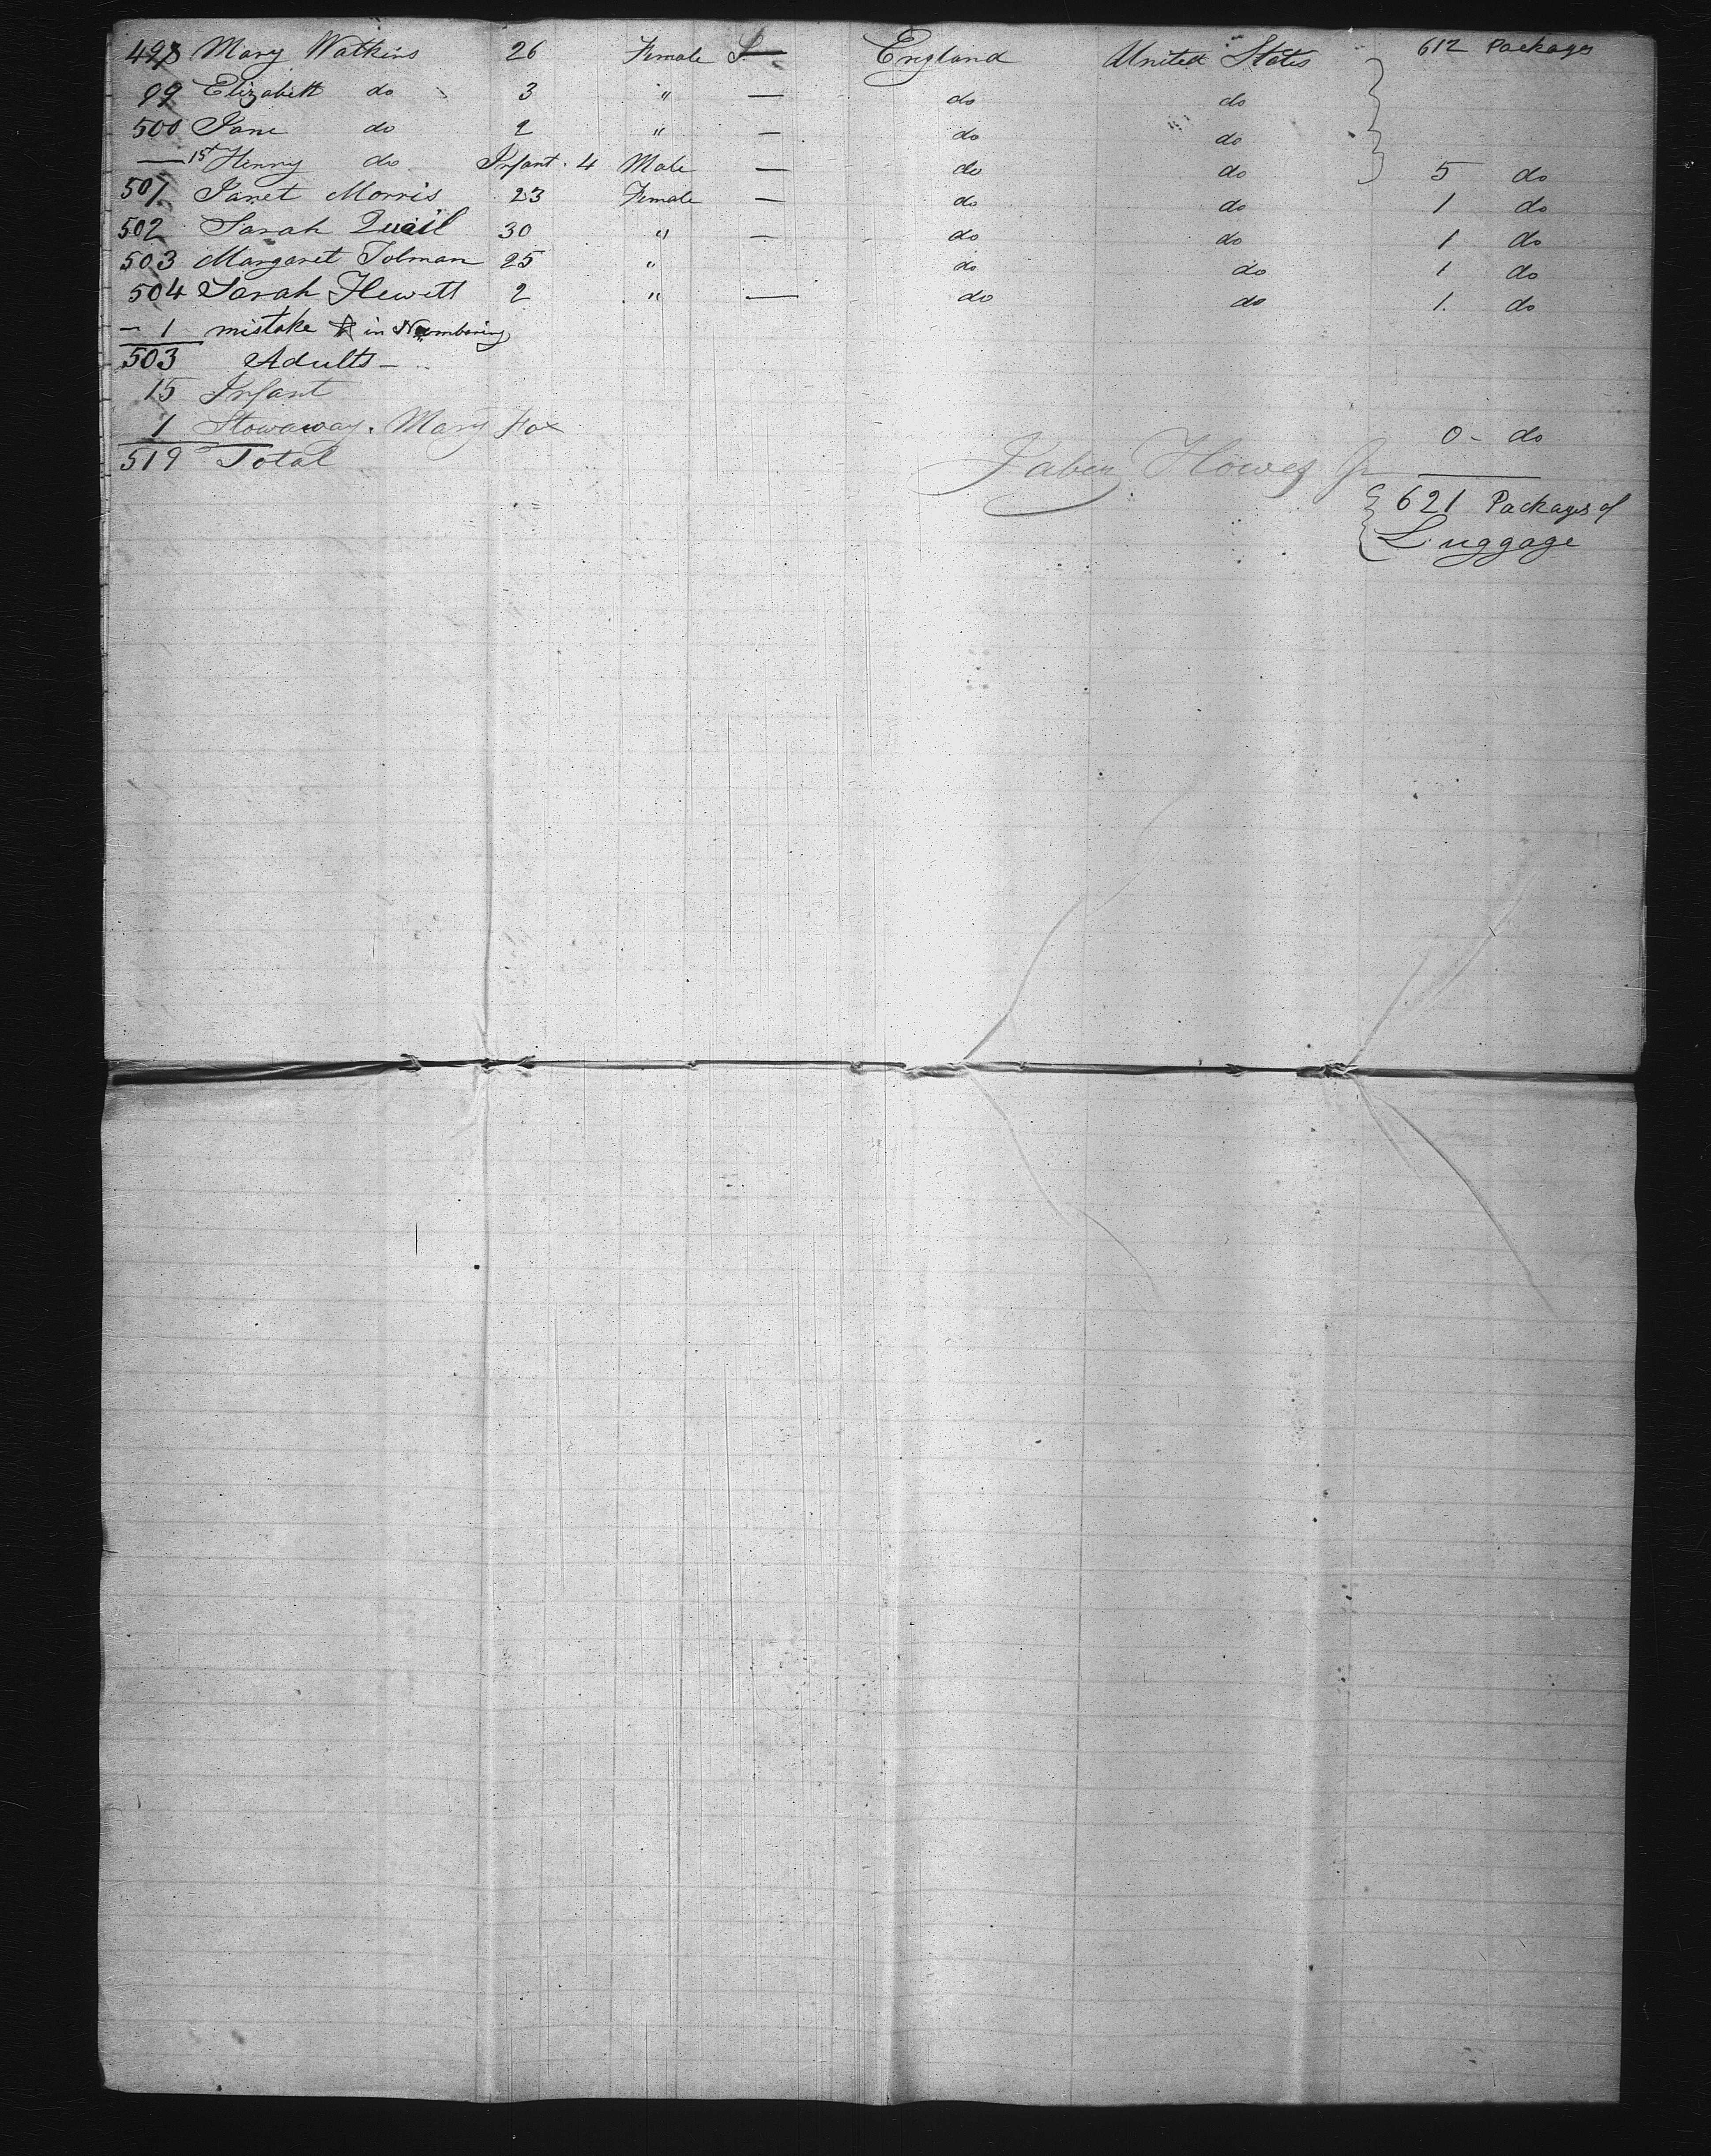 498 Mary Watkins 26 Female S. — England United States 612 Packages
99 Elizabeth do 3 " — do do
500 Jane do 2 " — do do
— 15th Henry do Infant. 4 Male — do do 5 do
501 Janet Morris 23 Female — do do 1 do
502 Sarah Quail 30 " — do do 1 do
503 Margaret Tolman 25 " do do 1 do
504 Sarah Hewett 2 " — do do 1. do
— 1 mistake in Numbering
503 Adults —
15 Infant
1 Stowaway. Mary Fox 0 - do
519 Total Jabez Howes Jr
621 Packages of
Luggage